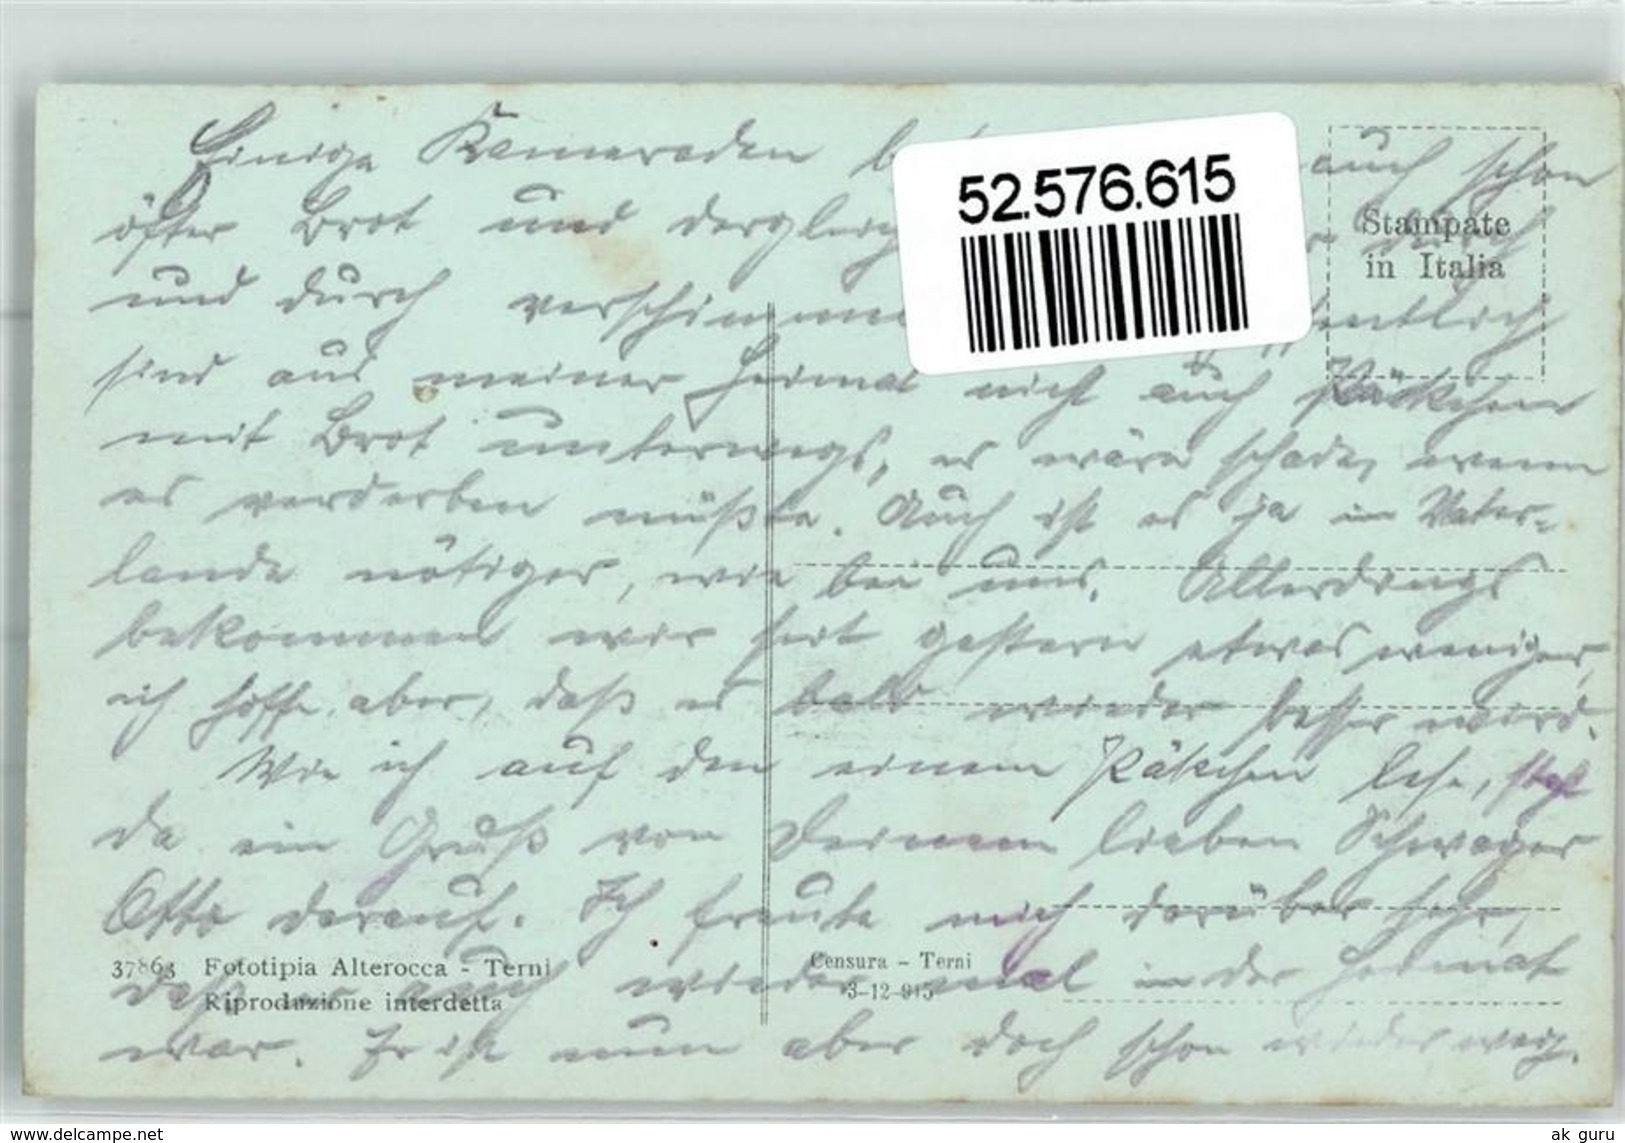 Einige Kameraden auch schon
öfter Brot und
und durch
sind aus meiner Heimat nicht auch Päckchen
mit Brot unterwegs, es wäre schade, wenn
es verderben müßte. Auch ist es ja im Vater-
lande nötiger, wie bei uns. Allerdings
bekommen wir seit gestern etwas weniger,
ich hoffe aber, daß es bald wieder besser wird.
Wie ich auf den einem Päkchen lese, steht
da ein Gruß von Deinem lieben Schwager
Otto darauf. Ich freute mich darüber sehr,
daß er auch wieder mal in der Heimat
war. Er ist nun aber doch schon wieder weg.
52.576.615
Stampate
in Italia
37863 Fototipia Alterocca - Terni
Riproduzione interdetta
Censura - Terni
3-12-915
www.delcampe.net
ak_guru